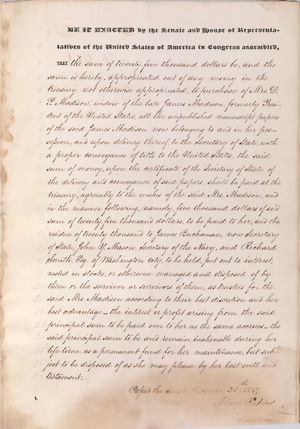 BE IT ENACTED by the Senate and House of Representa-
tatives of the United States of America in Congress assembled,
THAT the sum of twenty five thousand dollars be, and the
same is hereby, appropriated out of any money in the
treasury not otherwise appropriated, to purchase of Mrs. D.
P. Madison, widow of the late James Madison, formerly Presi-
dent of the United States, all the unpublished manuscript papers
of the said James Madison now belonging to and in her pos-
session, and upon delivery thereof to the Secretary of State, with
a proper conveyance of title to the United States, the said
sum of money, upon the certificate of the Secretary of State of
the delivery and conveyance of said papers, shall be paid at the
treasury, agreeably to the wishes of the said Mrs. Madison, and
in the manner following, namely: five thousand dollars of said
sum of twenty five thousand dollars, to be paid to her, and the
residue of twenty thousand to James Buchanan, now Secretary
of State, John Y. Mason, Secretary of the Navy, and Richard
Smith, Esq. of Washington city, to be held, put out to interest,
vested in stocks, or otherwise managed and disposed of by
them or the survivor or survivors of them, as trustees for the
said Mrs. Madison according to their best discretion and her
best advantage - the interest or profit arising from the said
principal sum to be paid over to her as the same accrues - the
said principal sum to be and remain inalienable during her
life time, as a permanent fund for her maintenance, but sub-
ject to be disposed of as she may please by her last will and
testament.